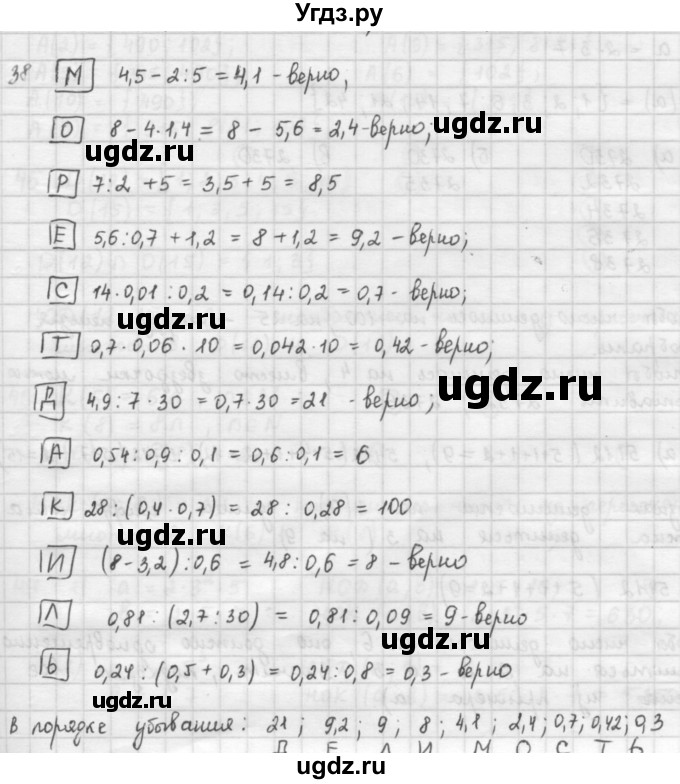 Угдз.ру
38 М 4,5 - 2 : 5 = 4,1 - верно,
О 8 - 4 · 1,4 = 8 - 5,6 = 2,4 - верно;
ugdz.ru
ugdz.ru
Р 7 : 2 + 5 = 3,5 + 5 = 8,5
Е 5,6 : 0,7 + 1,2 = 8 + 1,2 = 9,2 - верно;
С 14 · 0,01 : 0,2 = 0,14 : 0,2 = 0,7 - верно;
ugdz.ru
Т 0,7 · 0,06 · 10 = 0,042 · 10 = 0,42 - верно;
ugdz.ru
Д 4,9 : 7 · 30 = 0,7 · 30 = 21 - верно;
А 0,54 : 0,9 : 0,1 = 0,6 : 0,1 = 6
К 28 : (0,4 · 0,7) = 28 : 0,28 = 100
ugdz.ru
И (8 - 3,2) : 0,6 = 4,8 : 0,6 = 8 - верно
Л 0,81 : (2,7 : 30) = 0,81 : 0,09 = 9 - верно
ugdz.ru
Ь 0,24 : (0,5 + 0,3) = 0,24 : 0,8 = 0,3 - верно
ugdz.ru
в порядке убывания: 21; 9,2; 9; 8; 4,1; 2,4; 0,7; 0,42; 0,3
Д Е Л И М О С Т Ь